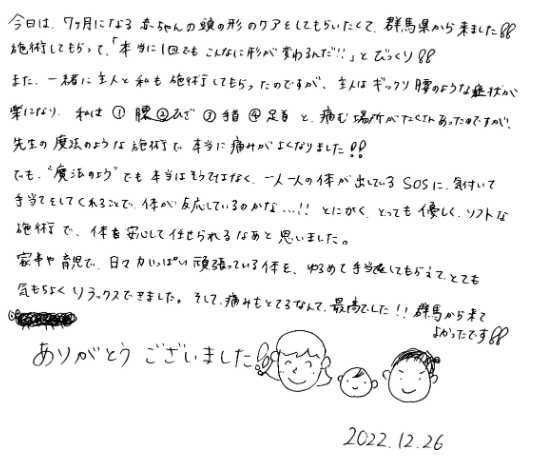 今日は、7ヶ月になる赤ちゃんの頭の形のケアをしてもらいたくて、群馬県から来ました!!
施術してもらって、「本当に1回でもこんなに形が変わるんだ!!」とびっくり!!
また、一緒に主人と私も施術してもらったのですが、主人はギックリ腰のような症状が
楽になり、私は ①腰②ひざ③手首④足首 と、痛む場所がたくさんあったのですが、
先生の魔法のような施術で、本当に痛みがよくなりました!!
でも、"魔法のよう"でも本当はそうではなく、一人一人の体が出しているSOSに、気付いて
手当てをしてくれることで、体が反応しているのかな…!! とにかく、とっても優しく、ソフトな
施術で、体を安心して任せられるなあと思いました。
家事や育児で、日々力いっぱい頑張っている体を、ゆるめて手当をしてもらえて、とても
気もちよくリラックスできました。そして、痛みもとてるなんて、最高でした!! 群馬から来て
よかったです!!
ありがとう ございました!!
2022.12.26